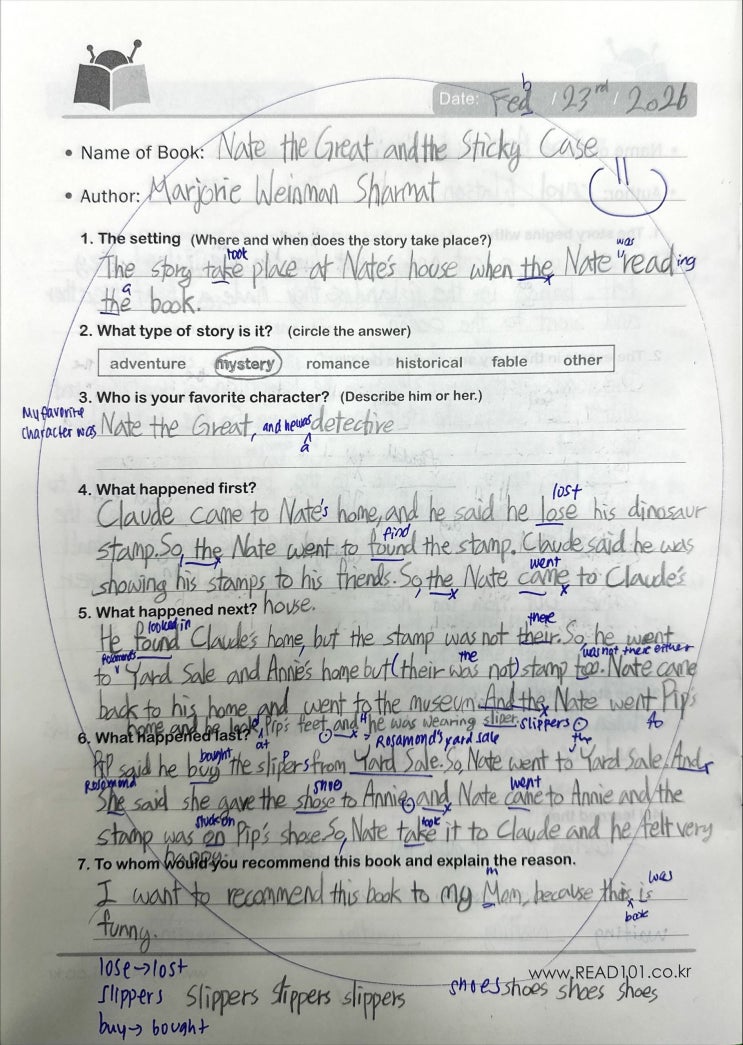 Date: Fed b / 23rd / 2026
• Name of Book: Nate the Great and the Sticky Case
• Author: Marjorie Weinman Sharmat
1. The setting (Where and when does the story take place?)
took was
The story take place at Nate's house when the Nate reading
a
the book.
2. What type of story is it? (circle the answer)
adventure mystery romance historical fable other
3. Who is your favorite character? (Describe him or her.)
My favorite
character was Nate the Great, and he was detective
a
4. What happened first?
lost
Claude came to Nate's home, and he said he lose his dinosaur
find
stamp. So, the Nate went to found the stamp. Claude said he was
went
showing his stamps to his friends. So, the Nate came to Claude's
5. What happened next? house.
looked in there
He found Claude's home, but the stamp was not their. So, he went
Rosamond's the was not there either
to Yard Sale and Annie's home but (their was not) stamp too. Nate came
back to his home and went to the museum. And the Nate went Pip's
to
home and he look Pip's feet, and he was wearing sliper. slippers
6. What happened last? at Rosamond's yard sale the
bought
Pip said he buy the slipers from Yard Sale. So, Nate went to Yard Sale. And,
Rosamond shoe went
She said she gave the shose to Annie, and Nate came to Annie and the
stuck on took
stamp was on Pip's shose. So, Nate take it to Claude and he felt very
happy.
7. To whom would you recommend this book and explain the reason.
m was
I want to recommend this book to my Mom, because this is
book
funny.
www.READ101.co.kr
lose → lost
slippers slippers slippers slippers shoes shoes shoes shoes
buy → bought